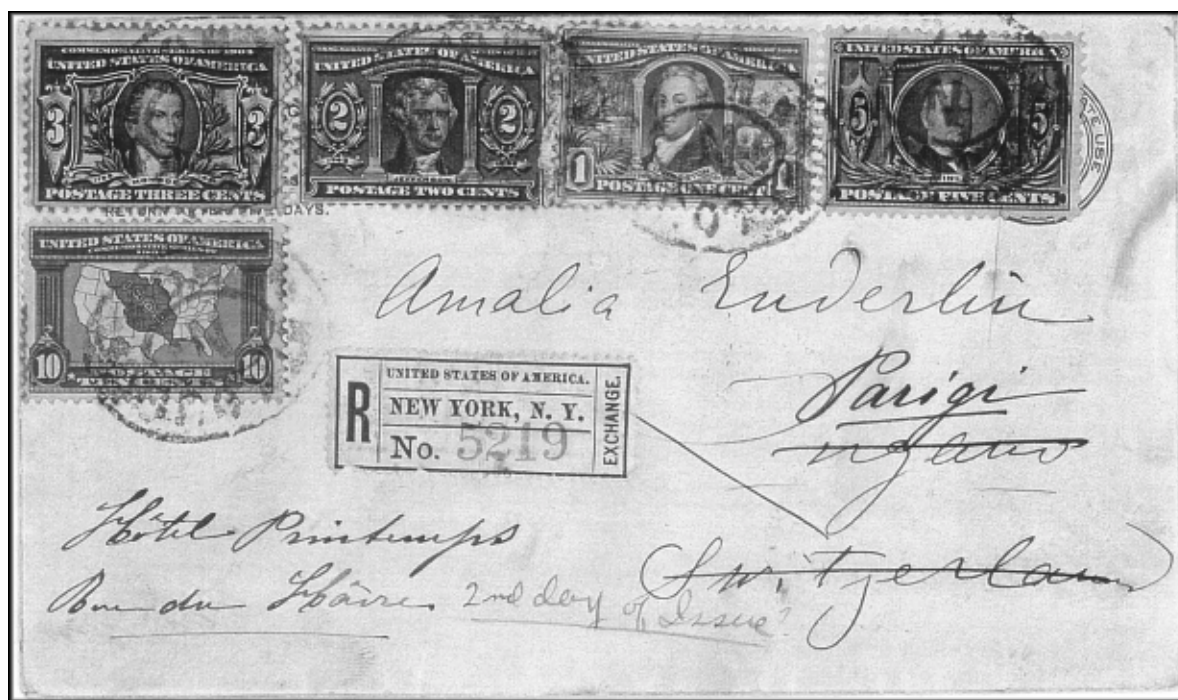 COMMEMORATIVE SERIES OF 1904
UNITED STATES OF AMERICA
3 3
POSTAGE THREE CENTS
UNITED STATES OF AMERICA
2 2
JEFFERSON
POSTAGE TWO CENTS
UNITED STATES OF AMERICA
1 1
POSTAGE ONE CENT
UNITED STATES OF AMERICA
5 5
POSTAGE FIVE CENTS
ATE USE
DAYS.
UNITED STATES OF AMERICA
10 10
POSTAGE
TEN CENTS
Amalia Enderlin
Parigi
Switzerland
R
UNITED STATES OF AMERICA.
NEW YORK, N. Y.
No. 5219
EXCHANGE.
Hôtel Printemps
Rue du Hâvre 2nd day of Issue